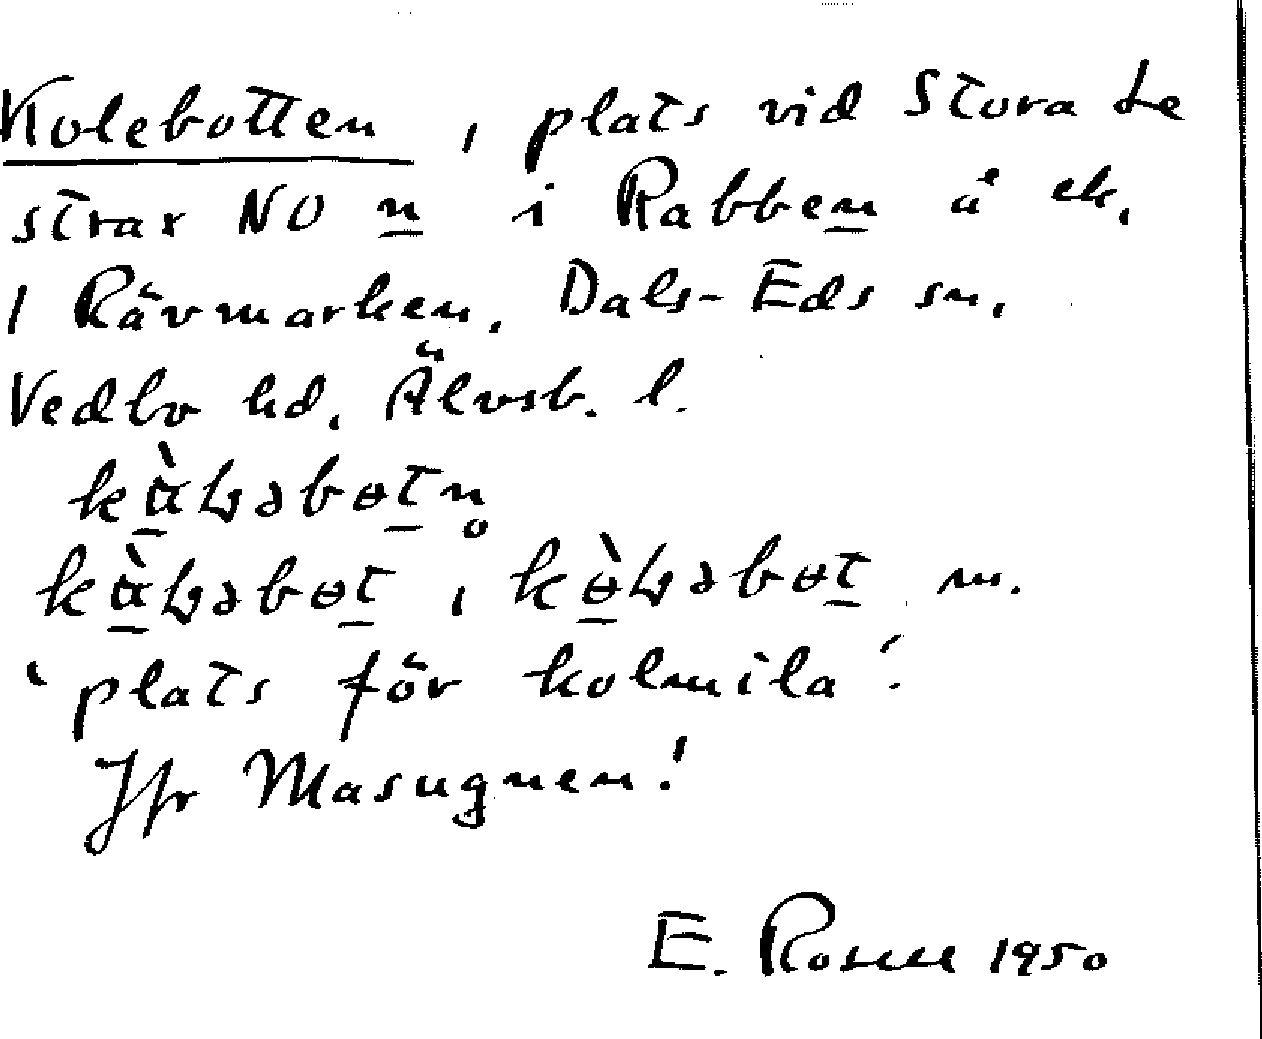 Kolebotten, plats vid Stora Le
strax NO n i Rabben å ek.
1 Rävmarken. Dals-Eds sn.
Vedbo hd. Älvsb. l.
'plats för kolmila'.
Jfr Masugnen!
E. Rosell 1950